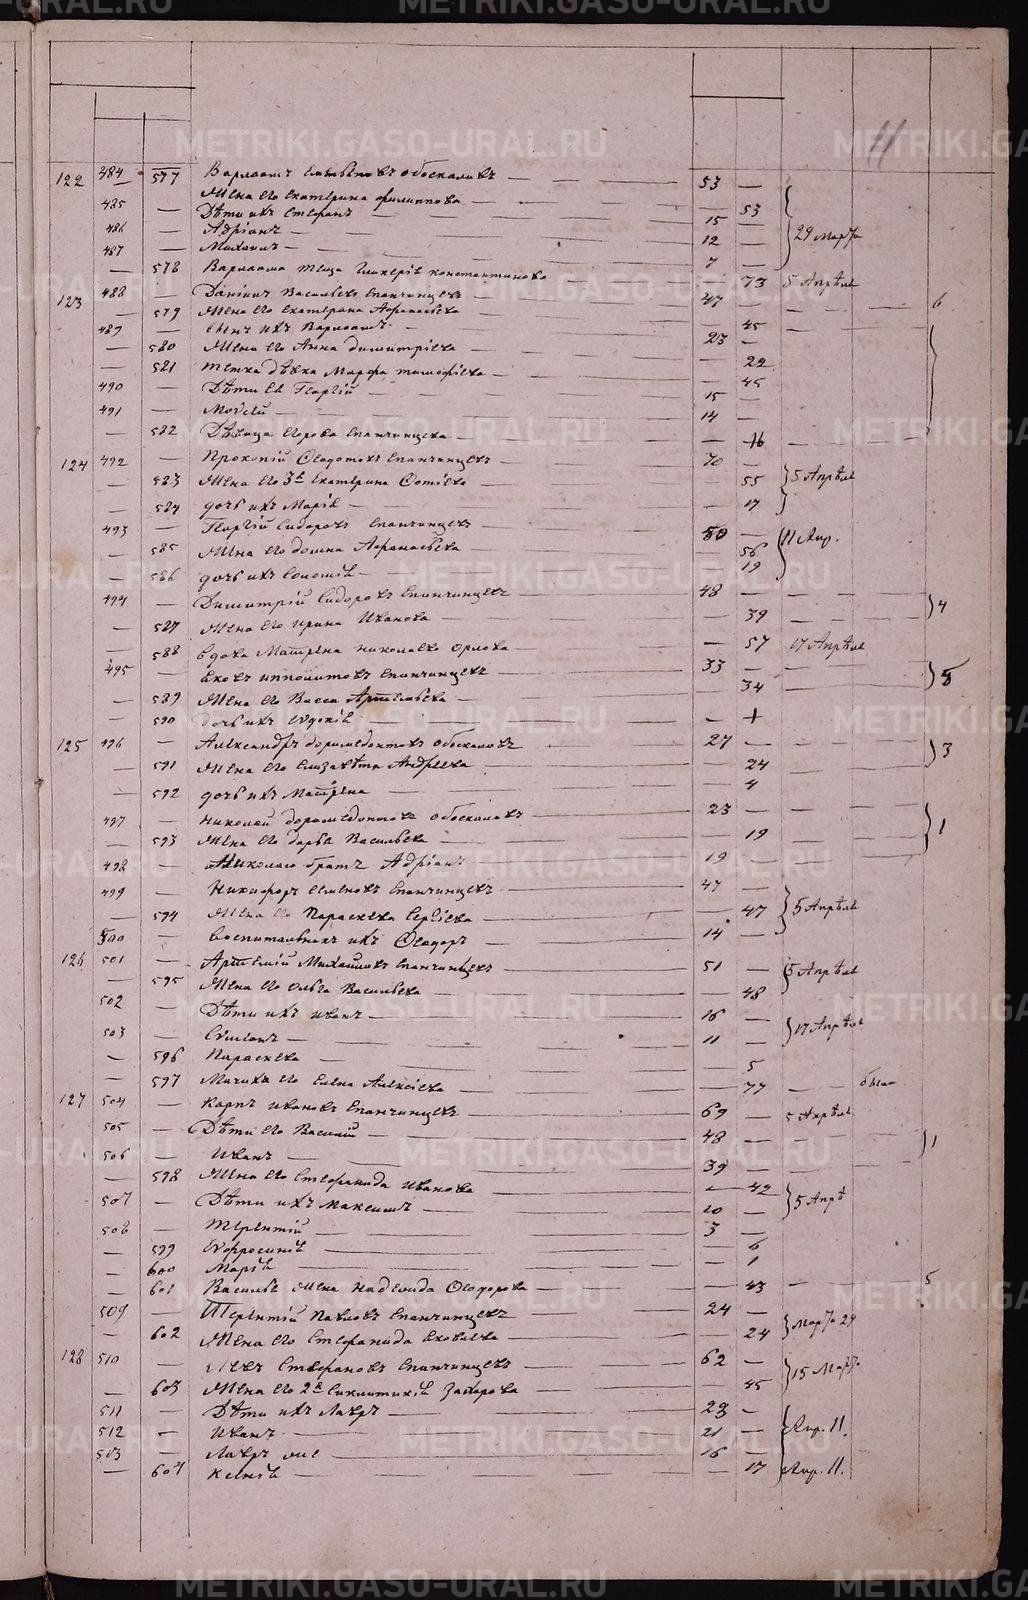 11
122 484 577 Варлаамъ Обоскаловъ — 53 —
485 — Жена его Екатерина Филиппова — — 53
— Дѣти ихъ Стефанъ — 15 —
486 — Адріанъ — 12 — 29 Марта
487 — Михаилъ — 7 —
— 578 Варлаама теща Гликерія Константинова — 73 5 Апрѣля
123 488 — Даніилъ Васильевъ Епанчинцевъ — 47 — 6
— 579 Жена его Екатерина Афанасьева — 45
489 — Сынъ ихъ Варлаамъ — 23 —
— 580 Жена его Анна Димитріева — 22
— 581 Тетка дѣвка Марфа Тимофѣева — 45
490 — Дѣти ея Георгій — 15 —
491 — Моѵсей — 14 —
— 582 Дѣвица Епанчинцева — 16
124 492 — Прокопій Ѳедотовъ Епанчинцевъ — 70 —
— 583 Жена его 3я Екатерина Фотіева — 55 5 Апрѣля
— 584 дочь ихъ Марія — 17
493 — Георгій Сидоровъ Епанчинцевъ 50 — 11 Апр.
— 585 Жена его Домна Афанасьева — 56
— 586 дочь ихъ Соломія — 19
494 — Димитрій Сидоровъ Епанчинцевъ 48 — 4
— 587 Жена его Ирина Иванова — 39
— 588 вдова Матрена Николаева Орлова — 57 17 Апрѣля
495 — Яковъ Ипполитовъ Епанчинцевъ 33 — 5
— 589 Жена его Васса Артемьева — 34
— 590 дочь ихъ Евдокія — +
125 496 — Александръ Доримедонтовъ Обоскаловъ 27 — 3
— 591 Жена его Елизавета Андреева — 24
— 592 дочь ихъ Матрена — 4
497 — Николай Доримедонтовъ Обоскаловъ 23 — 1
— 593 Жена его Дарья Васильева — 19
498 — Николаю братъ Адріанъ 19 —
499 — Никифоръ Семеновъ Епанчинцевъ 47 —
— 594 Жена его Параскева Сергіева — 47 5 Апрѣля
500 — Воспитанникъ ихъ Ѳеодоръ — 14 —
126 501 — Артемій Михайловъ Епанчинцевъ 51 — 5 Апрѣля
— 595 Жена его Ольга Васильева — 48
502 — Дѣти ихъ Иванъ — 16 —
503 — Симеонъ — 11 — 17 Апрѣля
— 596 Параскева — 5
— 597 Мачиха его Елена Алексіева — 77 —
127 504 — Карпъ Ивановъ Епанчинцевъ 69 — 5 Апрѣля
505 — Дѣти его Василій — 48 — 1
506 — Иванъ — 39 —
— 598 Жена его Стефанида Иванова — 42
507 — Дѣти ихъ Максимъ — 10 — 5 Апрѣ
508 — Терентій — 3 —
— 599 Евфросинія — 6
— 600 Марія — 1
— 601 Василья жена Надежда Ѳеодорова — 43 — 5
509 — Терентій Павловъ Епанчинцевъ 24 —
— 602 Жена его Стефанида Яковлева — 24 Марта 24
128 510 — Стефановъ Епанчинцевъ 62 —
— 603 Жена его 2я Синклитикія Захарова — 45 15 Марта
511 — Дѣти ихъ Лавръ — 23 —
512 — Иванъ — 21 — Апр. 11.
513 — Лавръ — 16 —
— 604 Ксенія — 17 Апр. 11.
METRIKI.GASO-URAL.RU